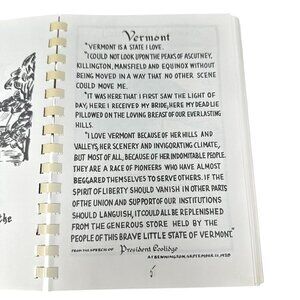 Vermont
"VERMONT IS A STATE I LOVE.
"I COULD NOT LOOK UPON THE PEAKS OF ASCUTNEY,
KILLINGTON, MANSFIELD AND EQUINOX WITHOUT
BEING MOVED IN A WAY THAT NO OTHER SCENE
COULD MOVE ME.
"IT WAS HERE THAT I FIRST SAW THE LIGHT OF
DAY, HERE I RECEIVED MY BRIDE, HERE MY DEAD LIE
PILLOWED ON THE LOVING BREAST OF OUR EVERLASTING
HILLS.
"I LOVE VERMONT BECAUSE OF HER HILLS AND
VALLEYS, HER SCENERY AND INVIGORATING CLIMATE,
BUT MOST OF ALL, BECAUSE OF HER INDOMITABLE PEOPLE.
THEY ARE A RACE OF PIONEERS WHO HAVE ALMOST
BEGGARED THEMSELVES TO SERVE OTHERS. IF THE
SPIRIT OF LIBERTY SHOULD VANISH IN OTHER PARTS
OF THE UNION AND SUPPORT OF OUR INSTITUTIONS
SHOULD LANGUISH, IT COULD ALL BE REPLENISHED
FROM THE GENEROUS STORE HELD BY THE
PEOPLE OF THIS BRAVE LITTLE STATE OF VERMONT."
FROM THE SPEECH OF President Coolidge
AT BENNINGTON, SEPTEMBER 21, 1928
the